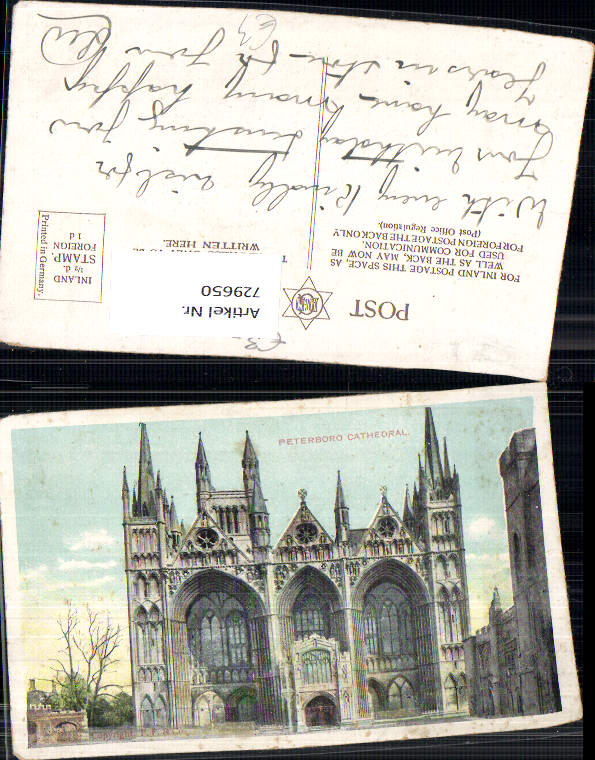 With every Kindly wish for
your birthday wishing you
many happy
years in store
£3
POST
FOR INLAND POSTAGE THIS SPACE, AS
WELL AS THE BACK, MAY NOW BE
USED FOR COMMUNICATION.
FOR FOREIGN POSTAGE THE BACK ONLY
(Post Office Regulation).
WRITTEN HERE.
INLAND
½ d.
STAMP.
FOREIGN
1 d
Printed in Germany.
Artikel Nr.
729650
£3-
PETERBORO CATHEDRAL.